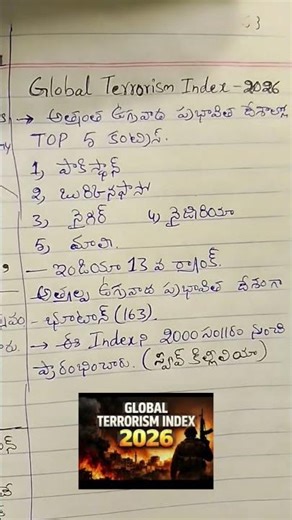 Global Terrorism Index - 2026
→ అత్యంత ఉగ్రవాద ప్రభావిత దేశాల్లో
TOP 5 కంట్రీస్.
1) పాకిస్థాన్
2) బురికినఫాసో
3) నైగర్ 4) నైజీరియా
5) మాలి.
- ఇండియా 13 వ ర్యాంక్.
అత్యల్ప ఉగ్రవాద ప్రభావిత దేశంగా
- భూటాన్ (163).
→ ఈ Index ని 2000 సం॥రం నుంచి
ప్రారంభించారు. (స్టీవ్ కిల్లిలియా)
GLOBAL
TERRORISM INDEX
2026